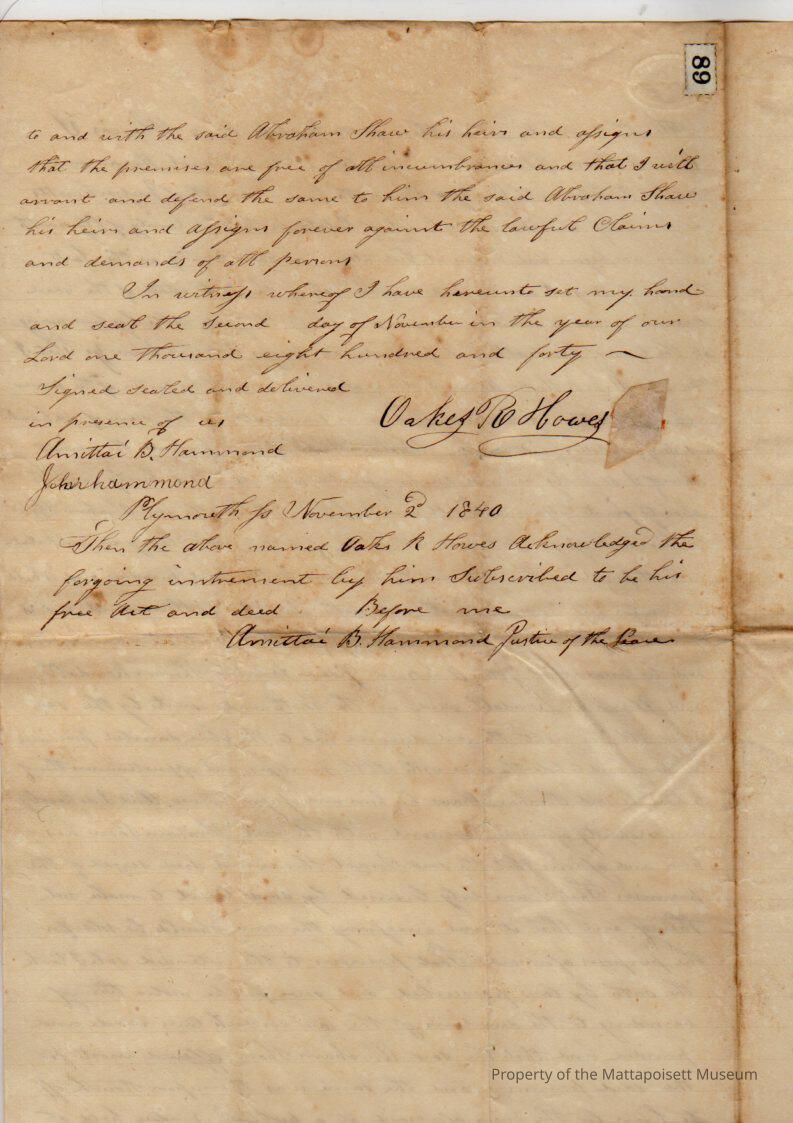 89
to and with the said Abraham Shaw his heirs and assigns
that the premises are free of all incumbrances and that I will
arrant and defend the same to him the said Abraham Shaw
his heirs and assigns forever against the lawful Claims
and demands of all persons
In witness whereof I have hereunto set my hand
and seal the Second day of November in the year of our
Lord one thousand eight hundred and forty —
Signed sealed and delivered
in presence of us
Oakes R Howes
Amittai B. Hammond
John hammond
Plymouth ss November 2d 1840
Then the above named Oakes R Howes Acknowledged the
forgoing instrement by him Subscribed to be his
free Act and deed Before me
Amittai B. Hammond Justice of the Peace
Property of the Mattapoisett Museum